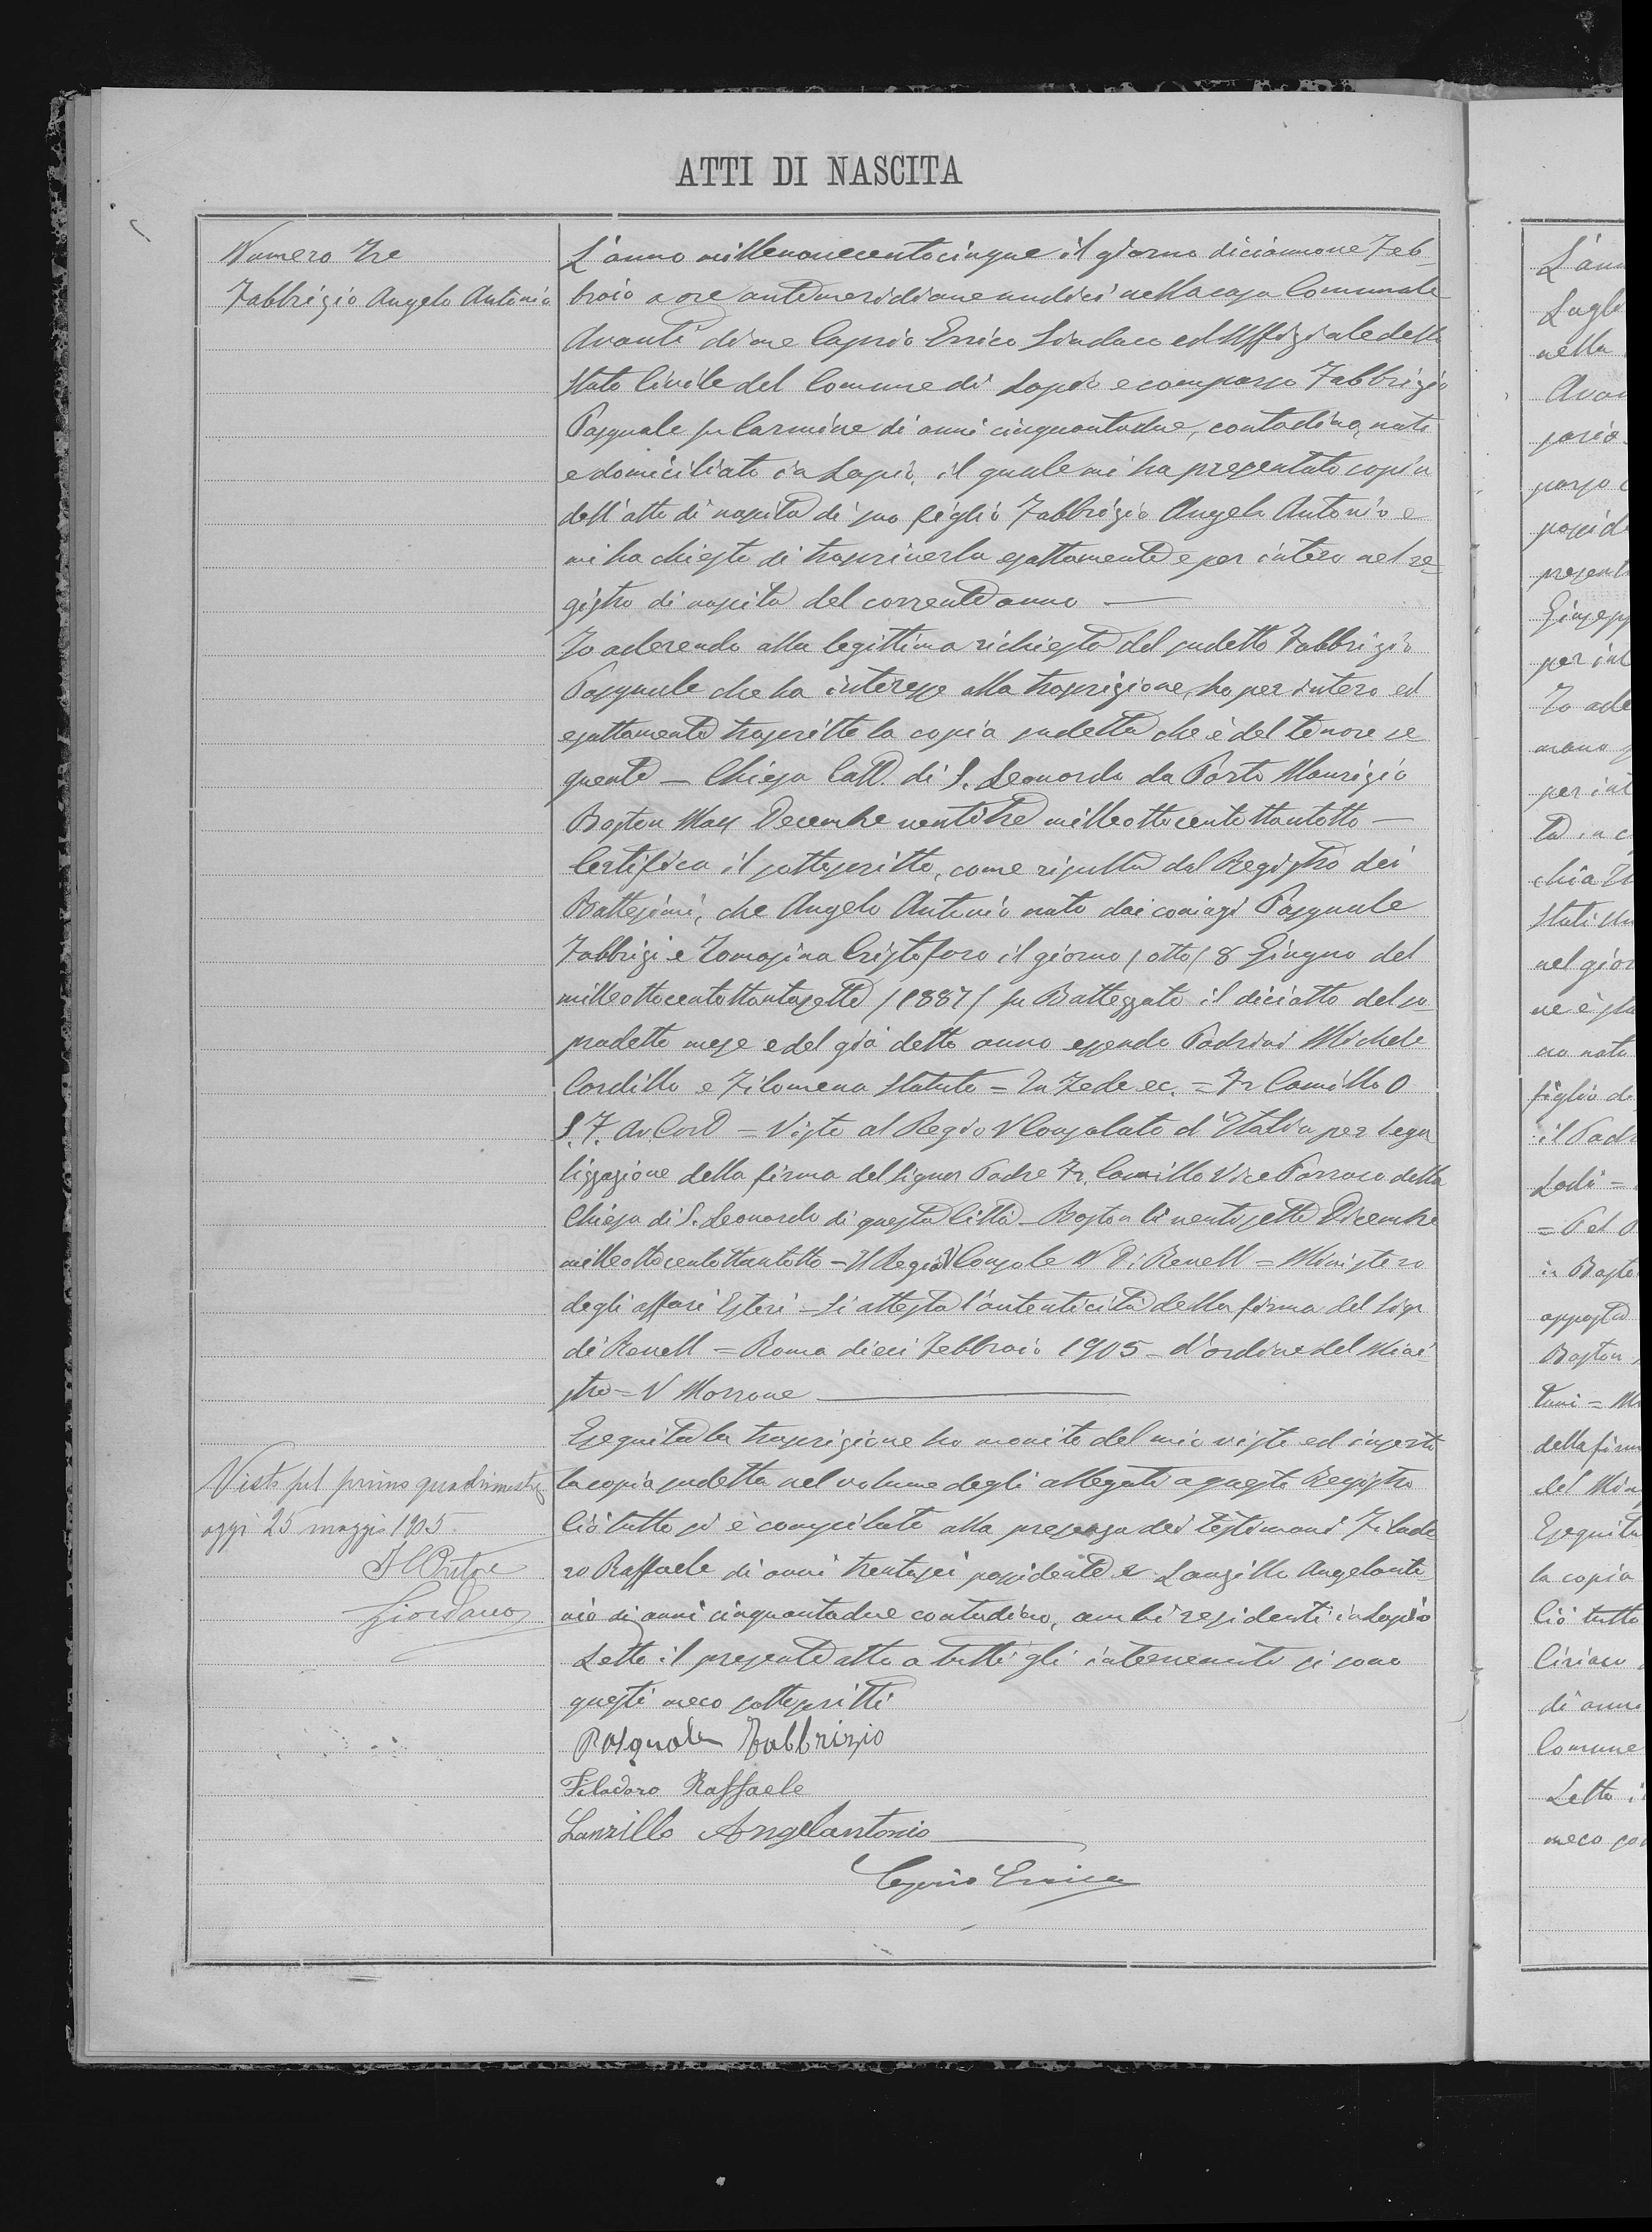 ATTI DI NASCITA
Numero Tre
Fabbrizio Angelo Antonio
L'anno millenovecentocinque il giorno diciannove Feb-
braio a ore antimeridiane undici nella casa Comunale
Avanti di me Caprio Errico Sindaco ed Uffiziale dello
Stato Civile del Comune di Lapio è comparso Fabbrizio
Pasquale fu Carmine di anni cinquantadue, contadino, nato
e domiciliato in Lapio, il quale mi ha presentato copia
dell'atto di nascita di suo figlio Fabbrizio Angelo Antonio e
mi ha chiesto di trascriverla esattamente e per intero nel re-
gistro di nascita del corrente anno —
Io aderendo alla legittima richiesta del sudetto Fabbrizio
Pasquale che ha interesse alla trascrizione, ho per intero ed
esattamente trascritto la copia sudetta che è del tenore se
guente — Chiesa Catt. di S. Leonardo da Porto Maurizio
Boston Mass Decembre ventitre milleottocentottantotto —
Certifica il sottoscritto, come risulta dal Registro dei
Battesimi, che Angelo Antonio nato dai coniugi Pasquale
Fabbrizi e Tomasina Cristoforo il giorno (otto) 8 Giugno del
milleottocentottantasette (1887) fu Battezzato il diciotto del so-
pradetto mese e del già detto anno essendo Padrini Michele
Cordillo e Filomena Statuto = In Fede ec. = Fr Camillo O
S. F. = Visto al Regio V Consolato d'Italia per lega
lizzazione della firma del Signor Padre Fr. Camillo Vice Parroco della
Chiesa di S. Leonardo di questa Città - Boston li ventisette Dicembre
milleottocentottantotto - Il Regio V Console Di Renell = Ministero
degli affari Esteri - Si attesta l'autenticità della firma del Sigr
di Renell = Roma dieci Febbraio 1905 - d'ordine del Mini
stro = V Morrone —
Eseguita la trascrizione ho munito del mio visto ed inserto
la copia sudetta nel volume degli allegati a questo Registro
Ciò tutto si è compilato alla presenza dei testimoni Filado
ro Raffaele di anni trentasei possidente e Lanzillo Angelanto
nio di anni cinquantadue contadino, ambi residenti in Lapio
Letto il presente atto a tutti gli intervenuti si sono
questi meco sottoscritti
Pasquale Fabbrizio
Filadoro Raffaele
Lanzillo Angelantonio
Caprio Errico
Visto pel primo quadrimestre
oggi 25 maggio 1905
Il Pretore
Giordano
L'ann
Lugli
nella
Avan
parso c
possid
present
Giusepp
per int
Io ade
per int
Stati Un
nel gior
figlio di
il Padr
in Bosto
Boston
della firm
del Min
Eseguita
la copia
Ciò tutto
di anni
Comune
Letto i